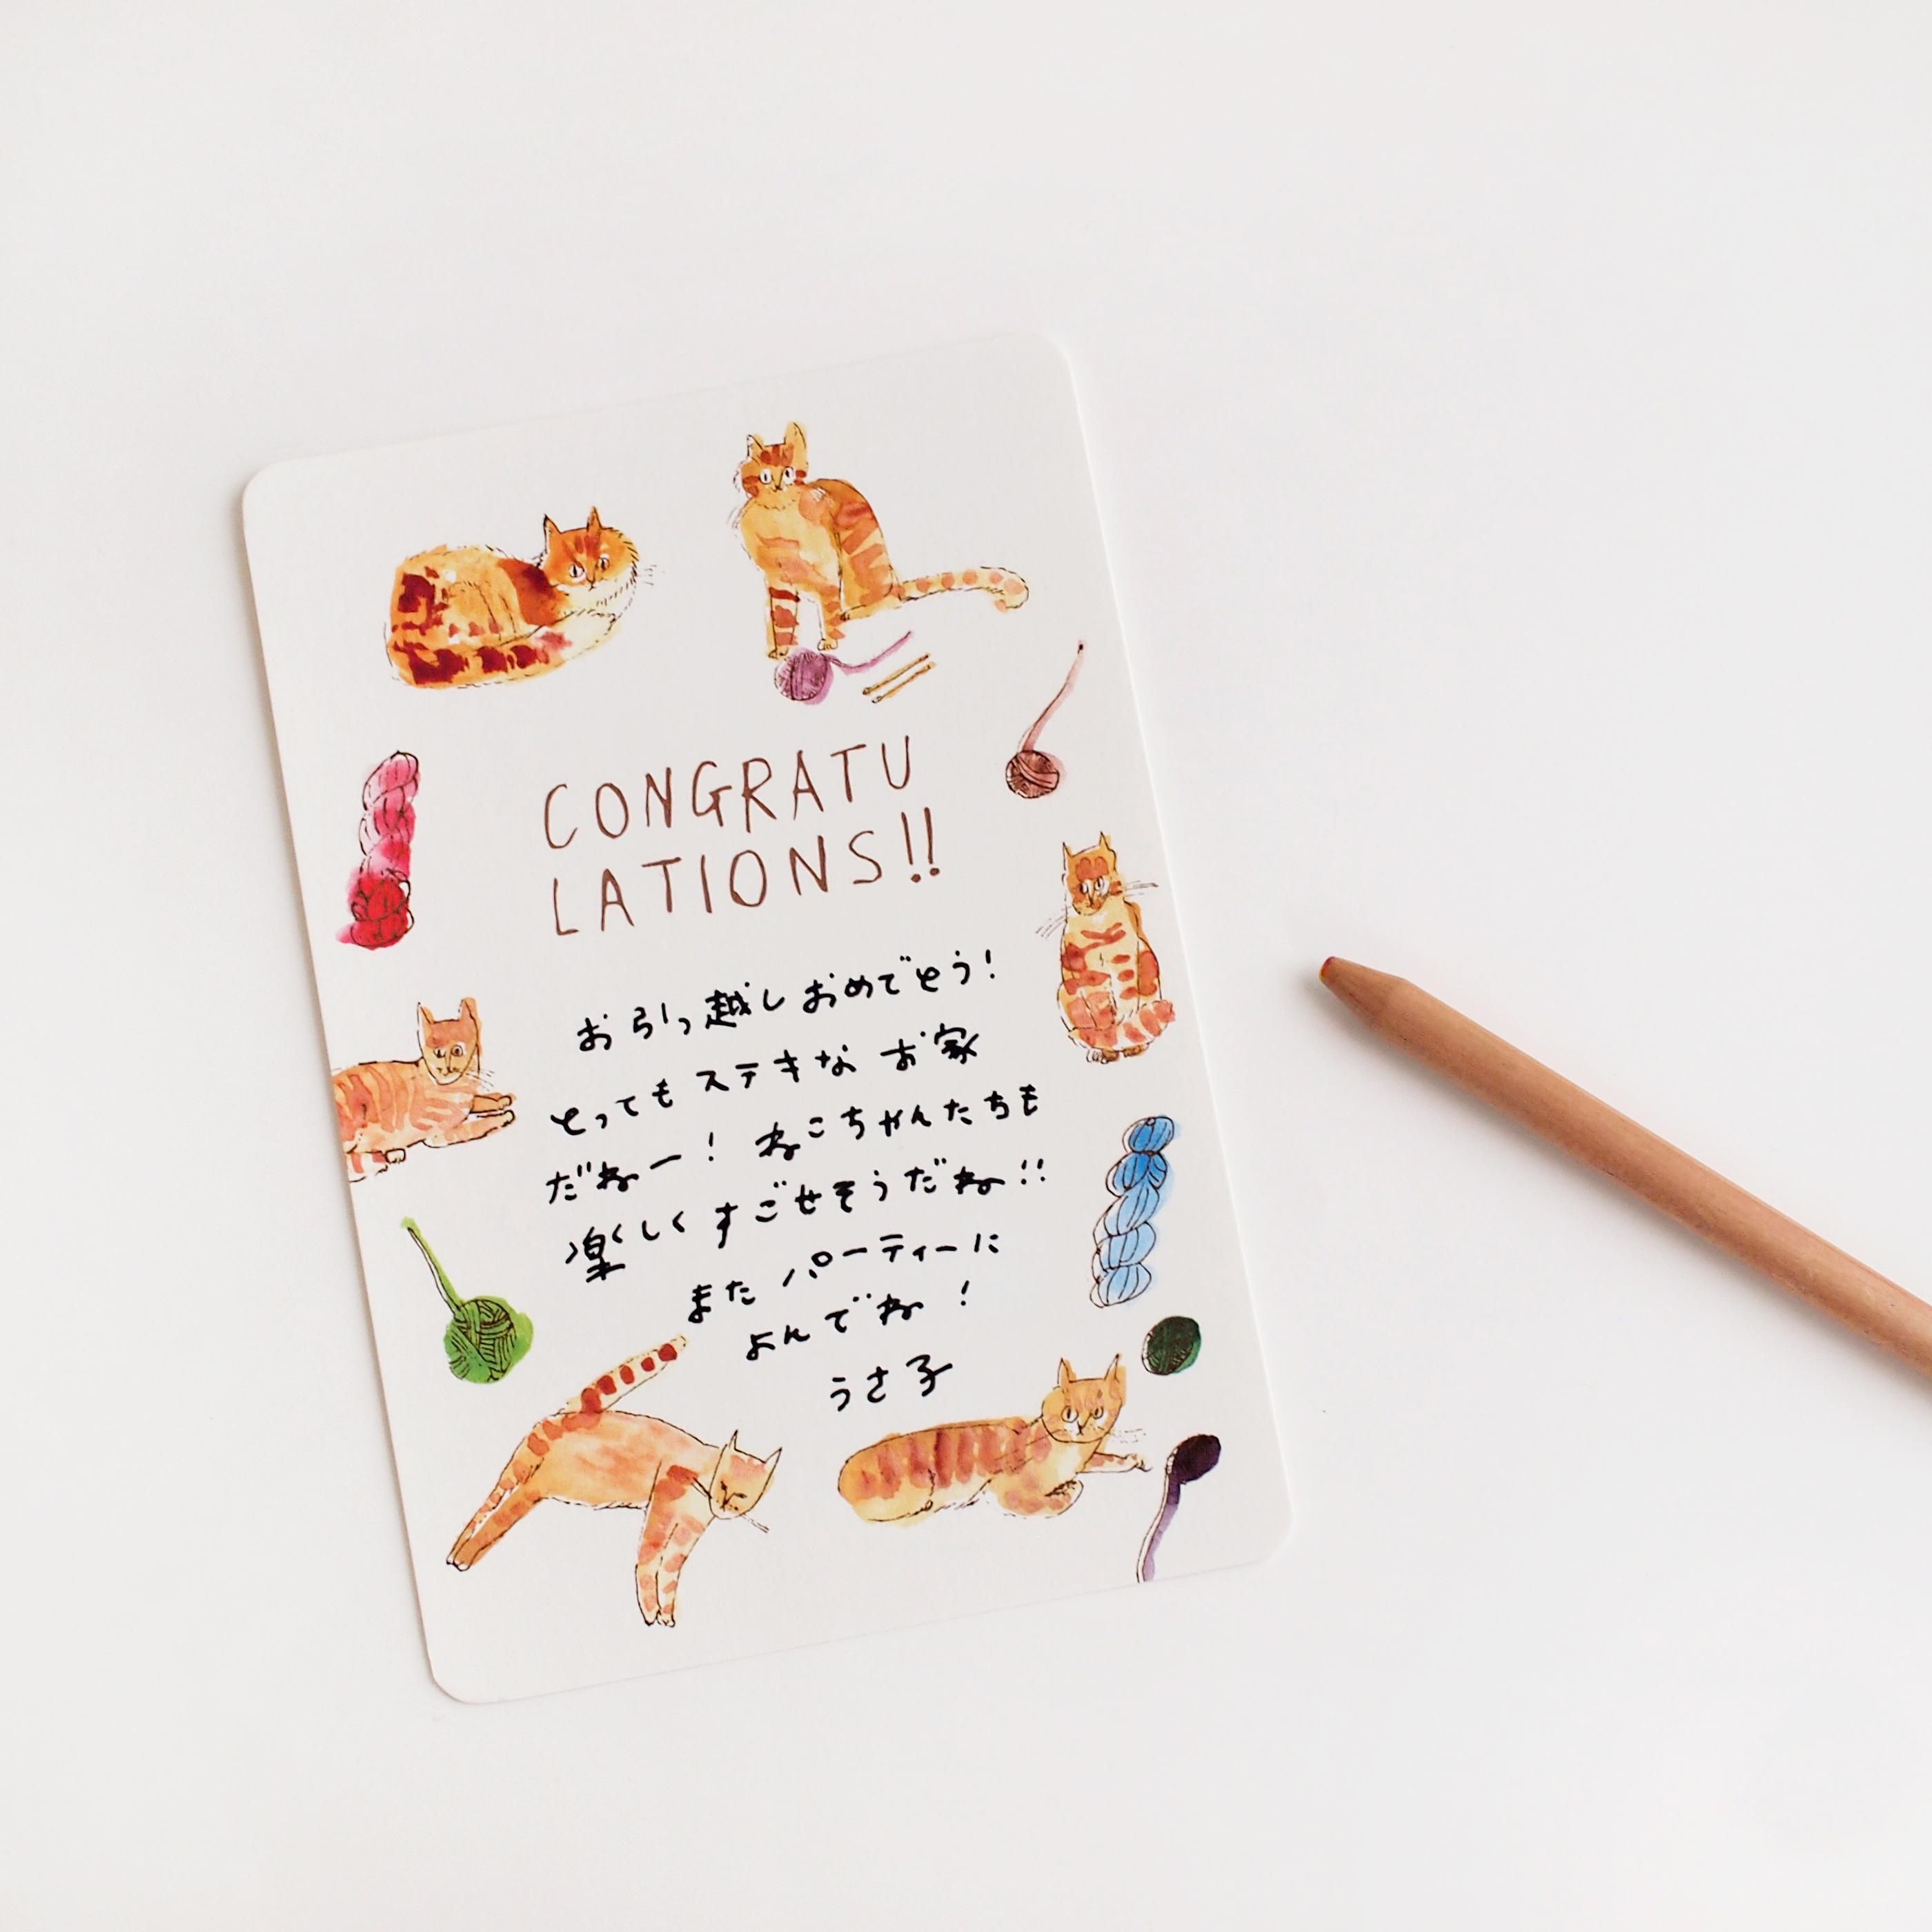 CONGRATU
LATIONS!!
お引っ越しおめでとう!
とってもステキなお家
だねー! ねこちゃんたちも
楽しくすごせそうだね!!
またパーティーに
よんでね!
うさ子